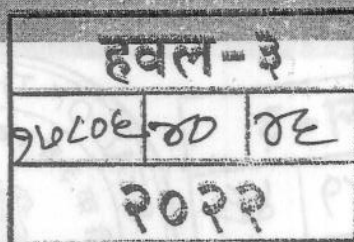 हवल-३
१७८०६ ४० ४६
२०२२